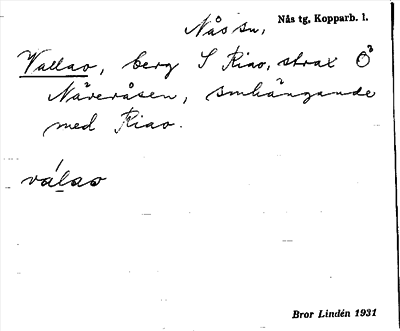 Nås sn, Nås tg, Kopparb. l.
Vallao, berg S Kiao, strax Ö
Näveråsen, smhängande
med Kiao.
válao
Bror Lindén 1931